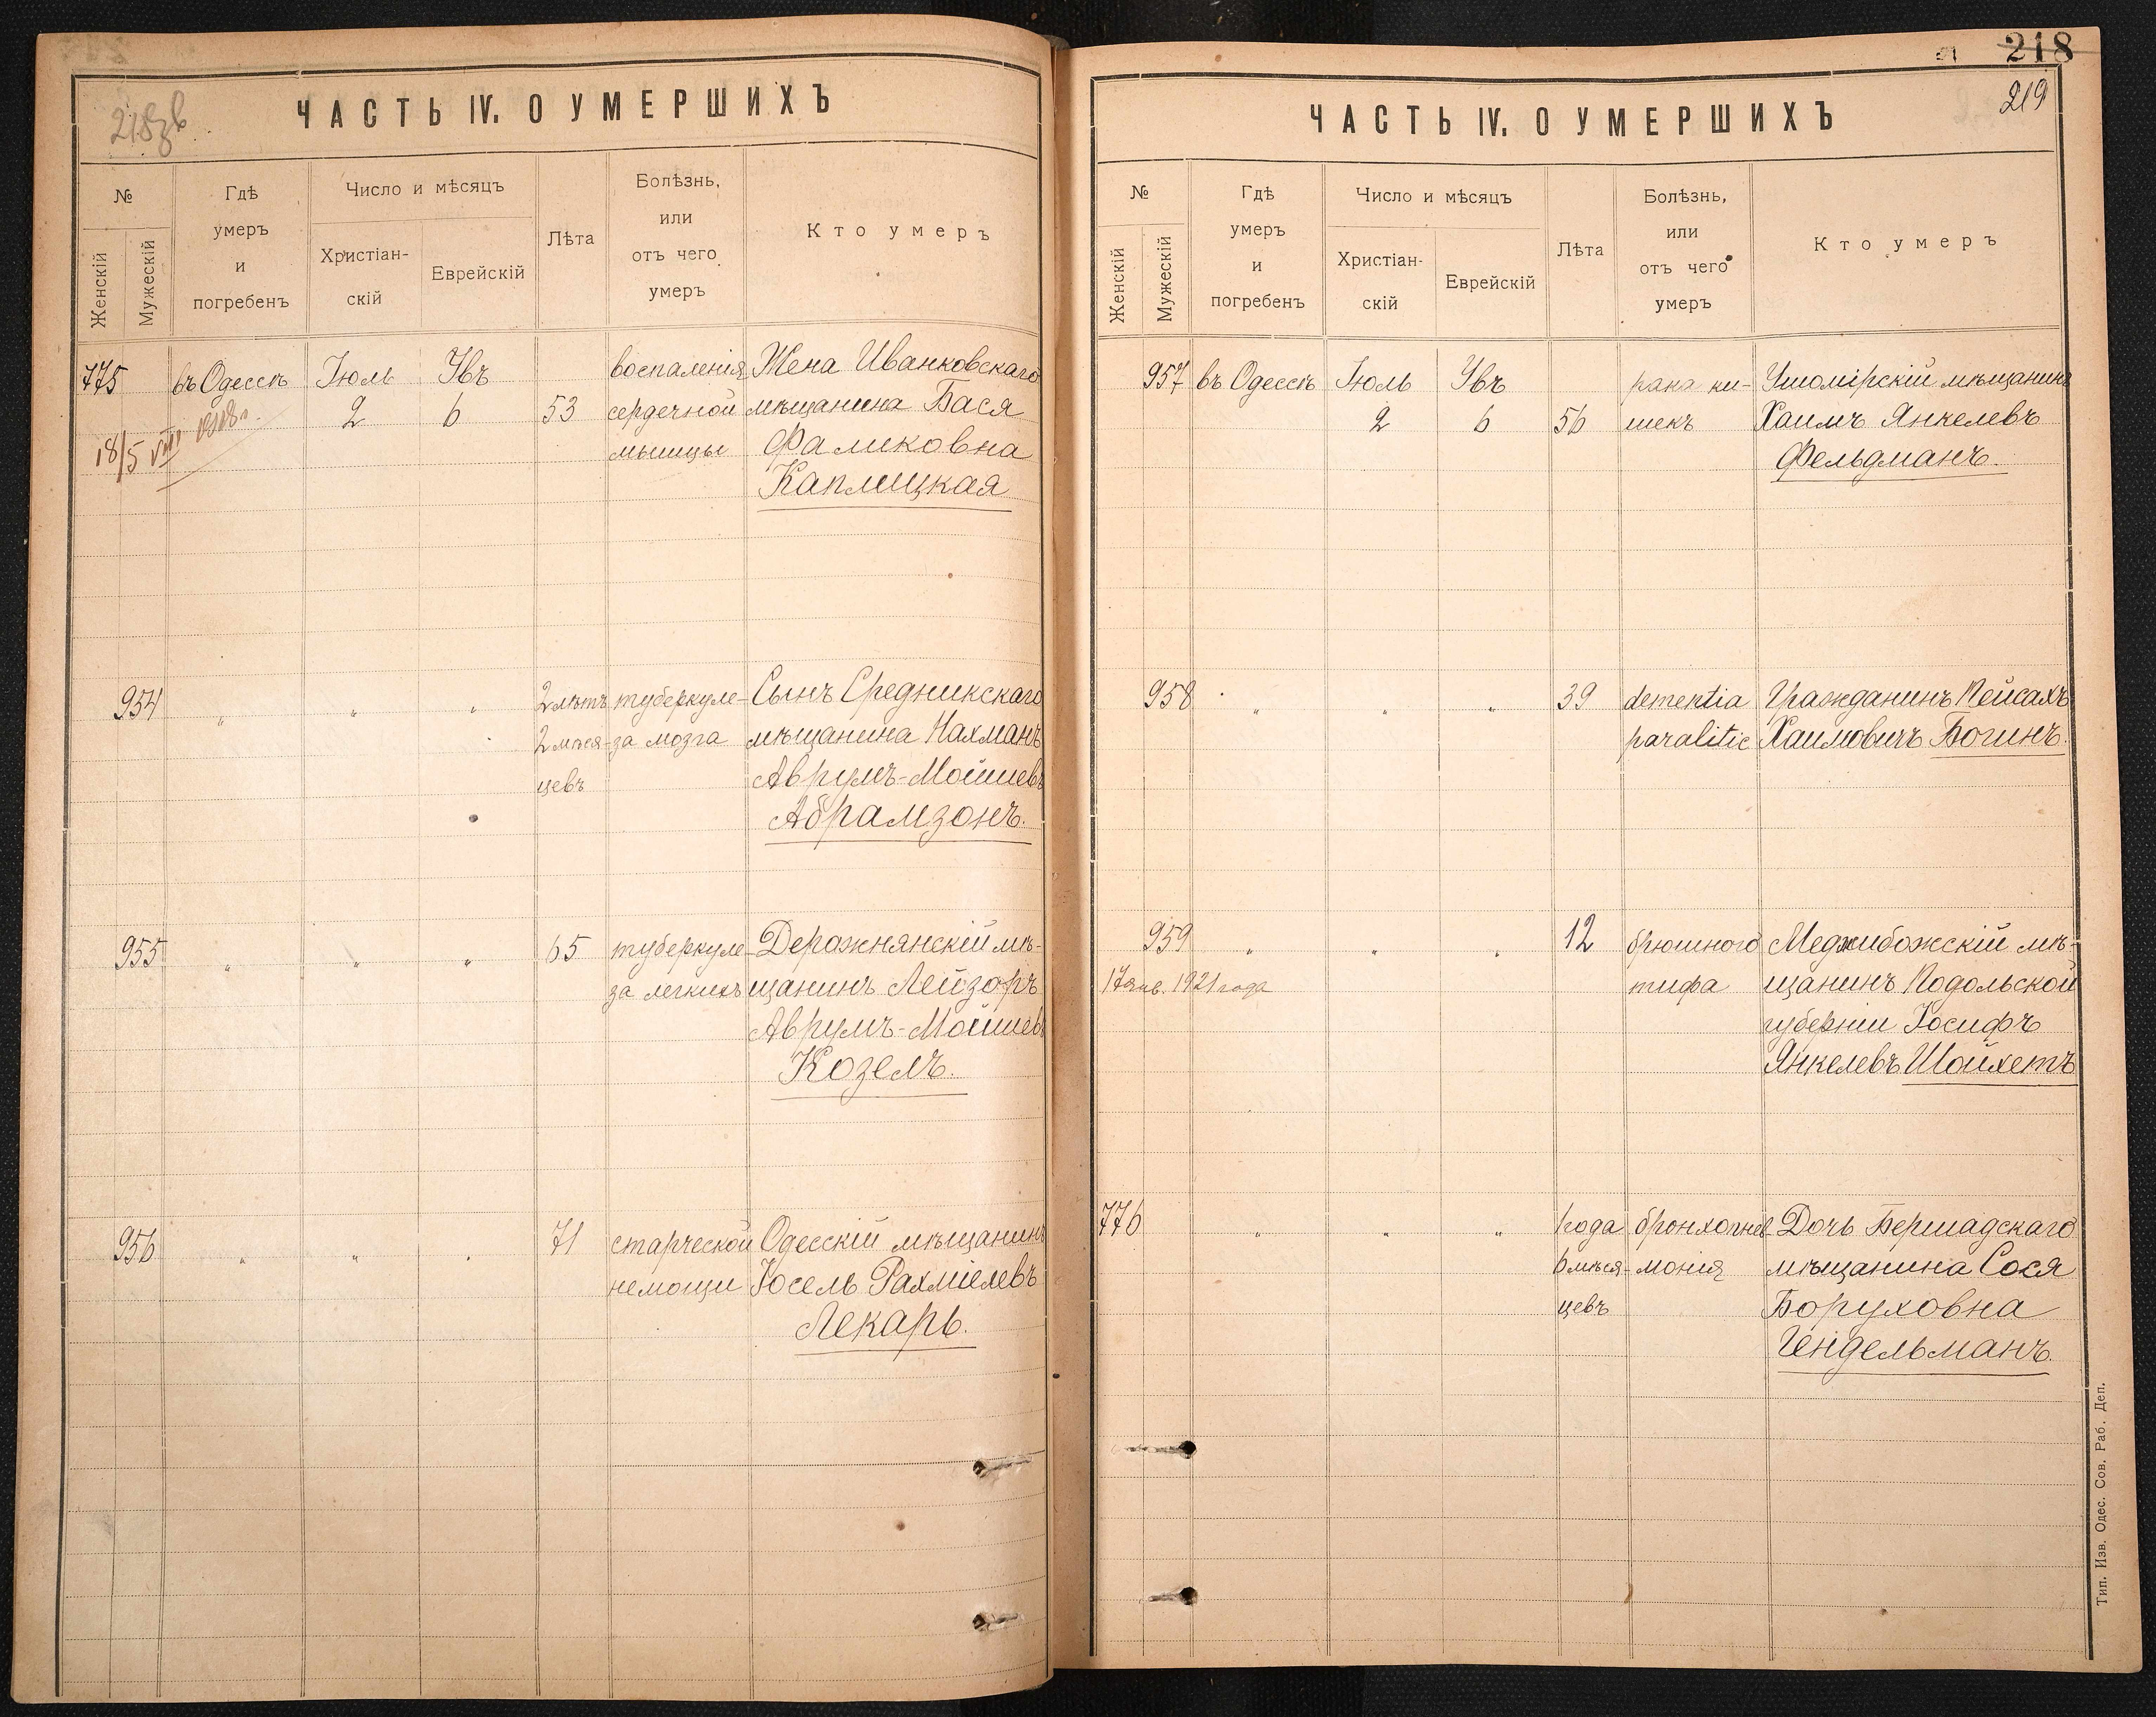 218 зв
ЧАСТЬ IV. О УМЕРШИХЪ
№
Женскій
Мужескій
Гдѣ
умеръ
и
погребенъ
Число и мѣсяцъ
Христіан-
скій
Еврейскій
Лѣта
Болѣзнь,
или
отъ чего
умеръ
Кто умеръ
775 въ Одессѣ Іюль Увъ воспаленія Жена Иванковскаго
2 6 53 сердечной мѣщанина Бася
18/5 VIII мышцы Фаликовна
Каплицкая
954 „ „ „ 2 лѣтъ туберкуле- Сынъ Средникскаго
2 мѣся- за мозга мѣщанина Нахманъ
цевъ Аврумъ-Мойшевъ
Абрамзонъ.
955 „ „ „ 65 туберкуле- Деражнянскій мѣ-
за легкихъ щанинъ Лейзоръ
Аврумъ-Мойшевъ
Козелъ.
956 „ „ „ 71 старческой Одесскій мѣщанинъ
немощи Іосель Рахміелевъ
Лекарь.
218
219
ЧАСТЬ IV. О УМЕРШИХЪ
№
Женскій
Мужескій
Гдѣ
умеръ
и
погребенъ
Число и мѣсяцъ
Христіан-
скій
Еврейскій
Лѣта
Болѣзнь,
или
отъ чего
умеръ
Кто умеръ
957 въ Одессѣ Іюль Увъ рака ки- Ушомірскій мѣщанинъ
2 6 56 шекъ Хаимъ Янкелевъ
Фельдманъ.
958 „ „ „ 39 dementia Гражданинъ Пейсахъ
paralitic Хаимовичъ Богинъ.
959 „ „ „ 12 брюшного Меджибожскій мѣ-
17 янв. 1921 года тифа щанинъ Подольской
губерніи Іосифъ
Янкелевъ Шойхетъ
776 „ „ „ 1 года бронхопнев- Дочь Бершадскаго
6 мѣся- монія мѣщанина Сося
цевъ Боруховна
Гендельманъ.
Тип. Изв. Одес. Сов. Раб. Деп.